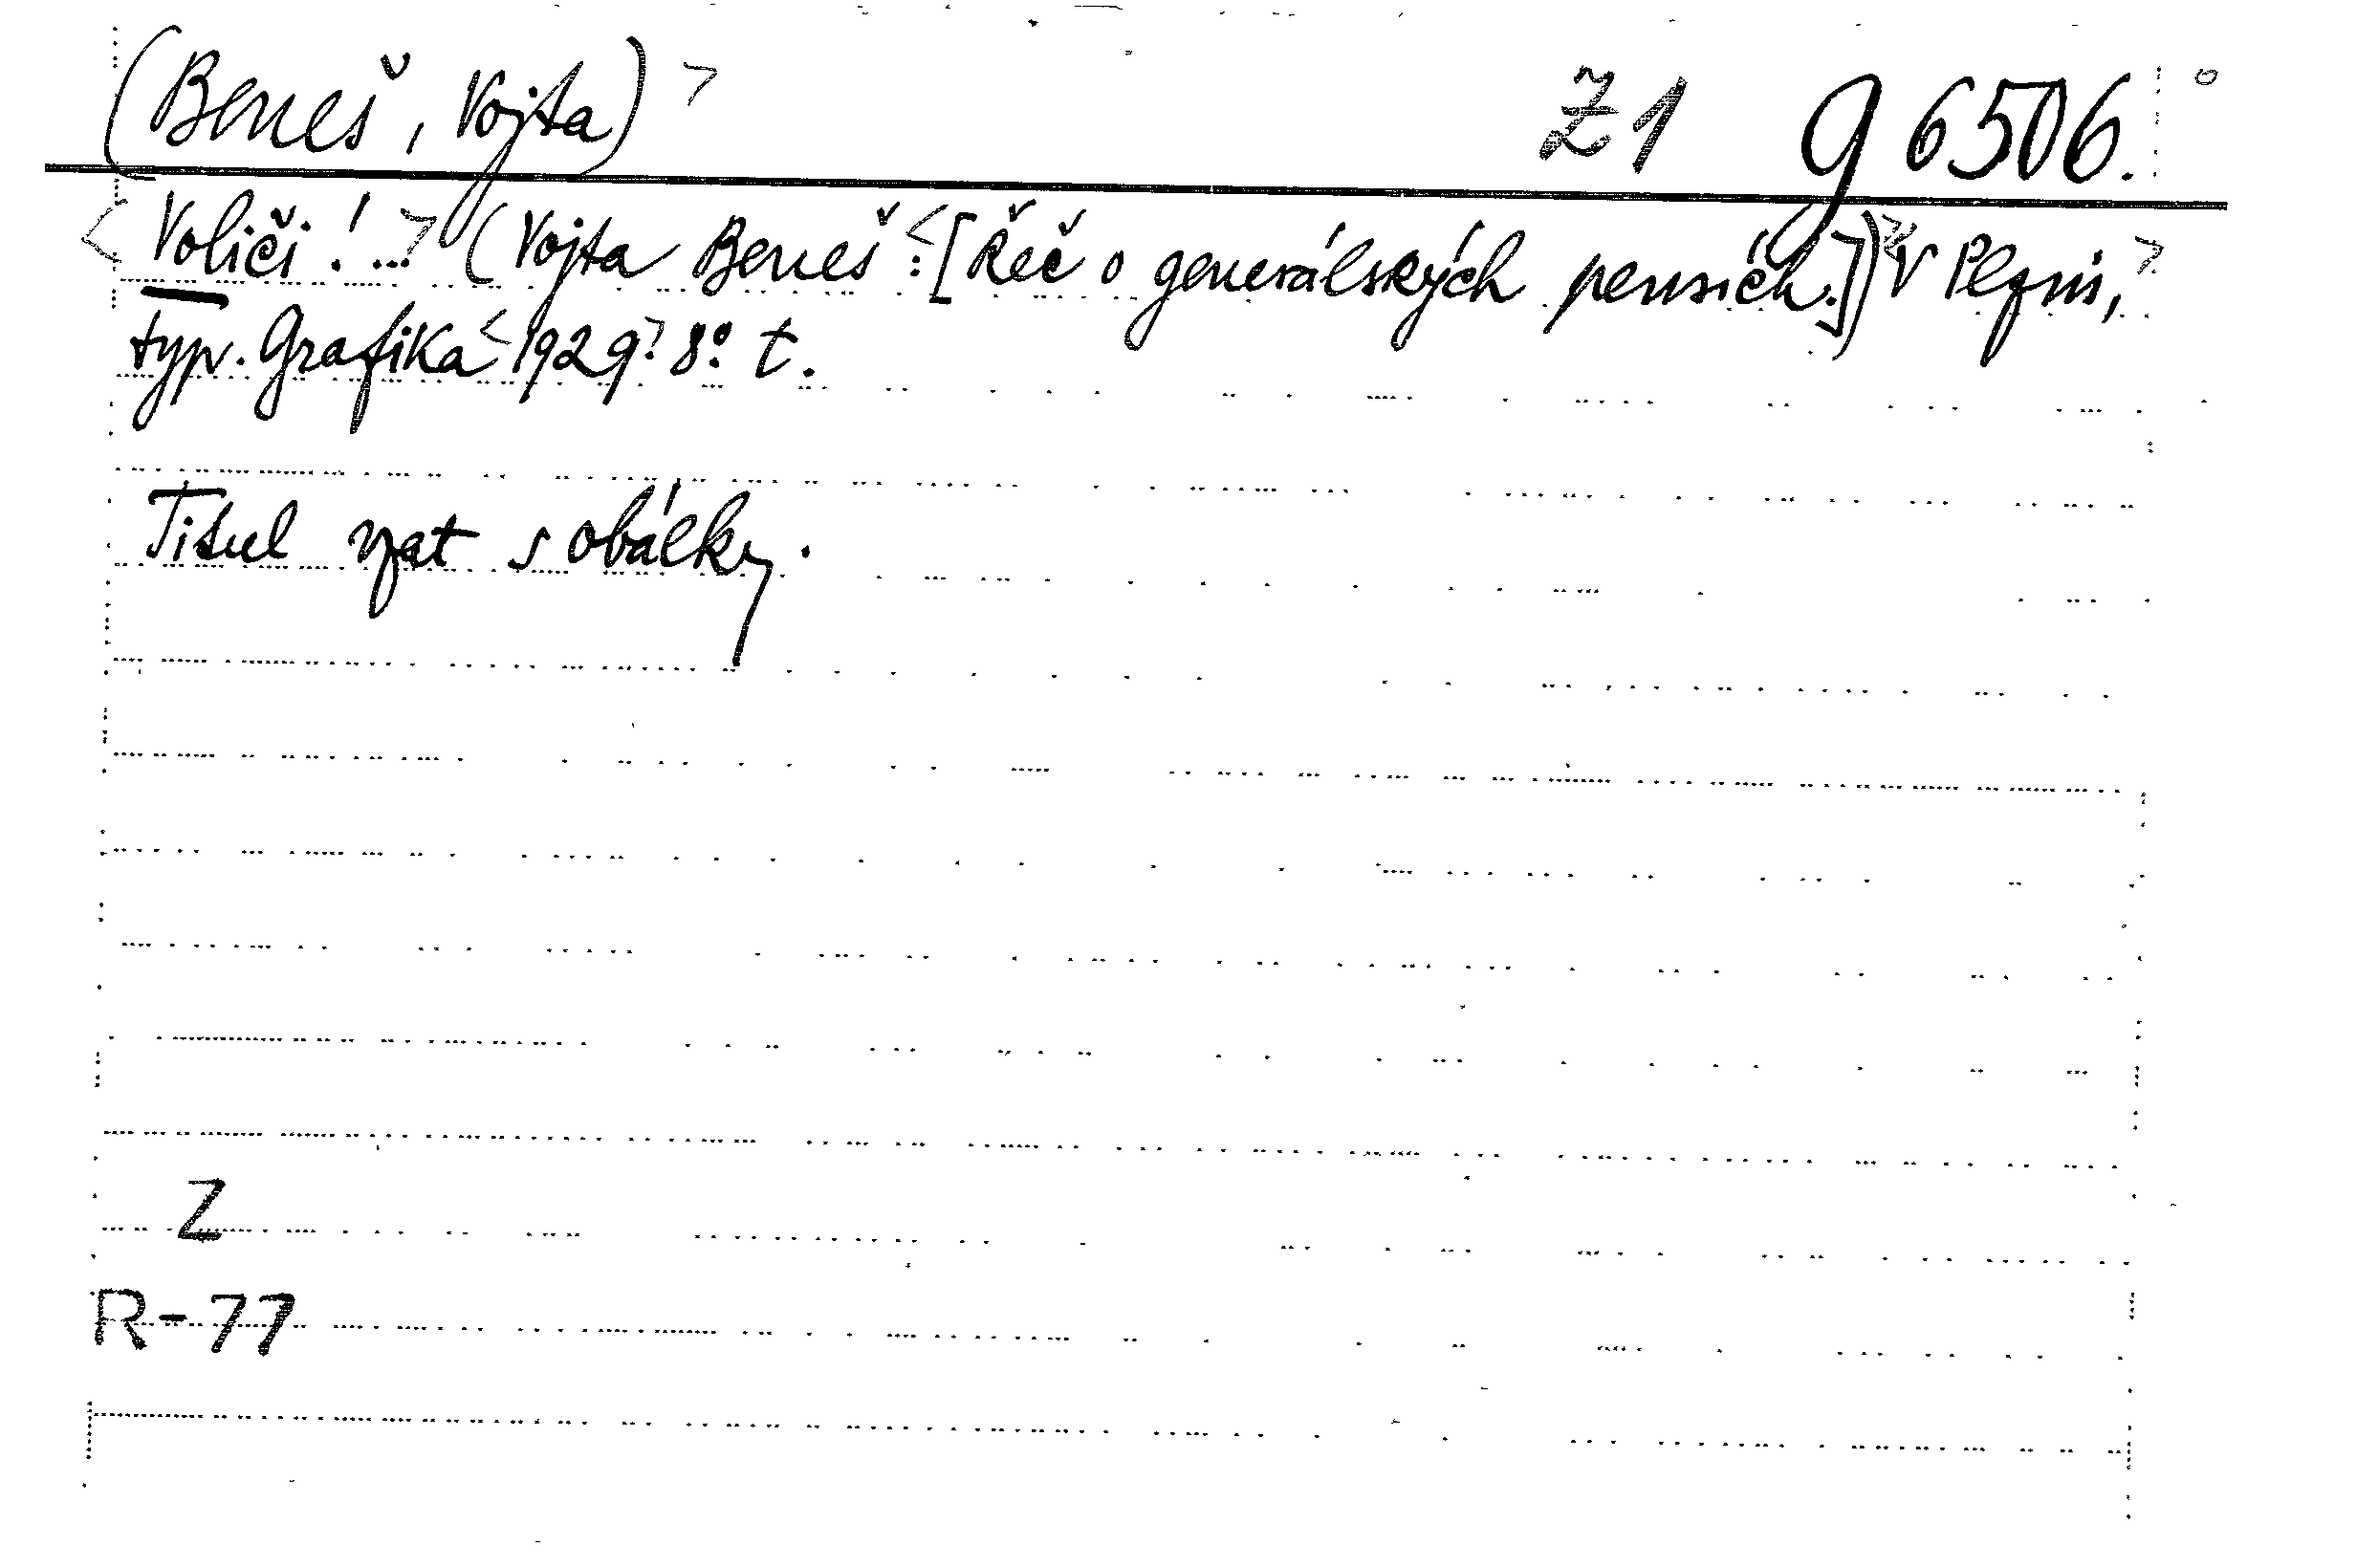 (Beneš, Vojta)> Z1 g 6506.
<Voliči!...> (Vojta Beneš<:[Řeč o generálských pensích.])> <V Plzni,>
typ. Grafika <1929>. 8°. t.
Titul vzat s obálky.
Z
R-77